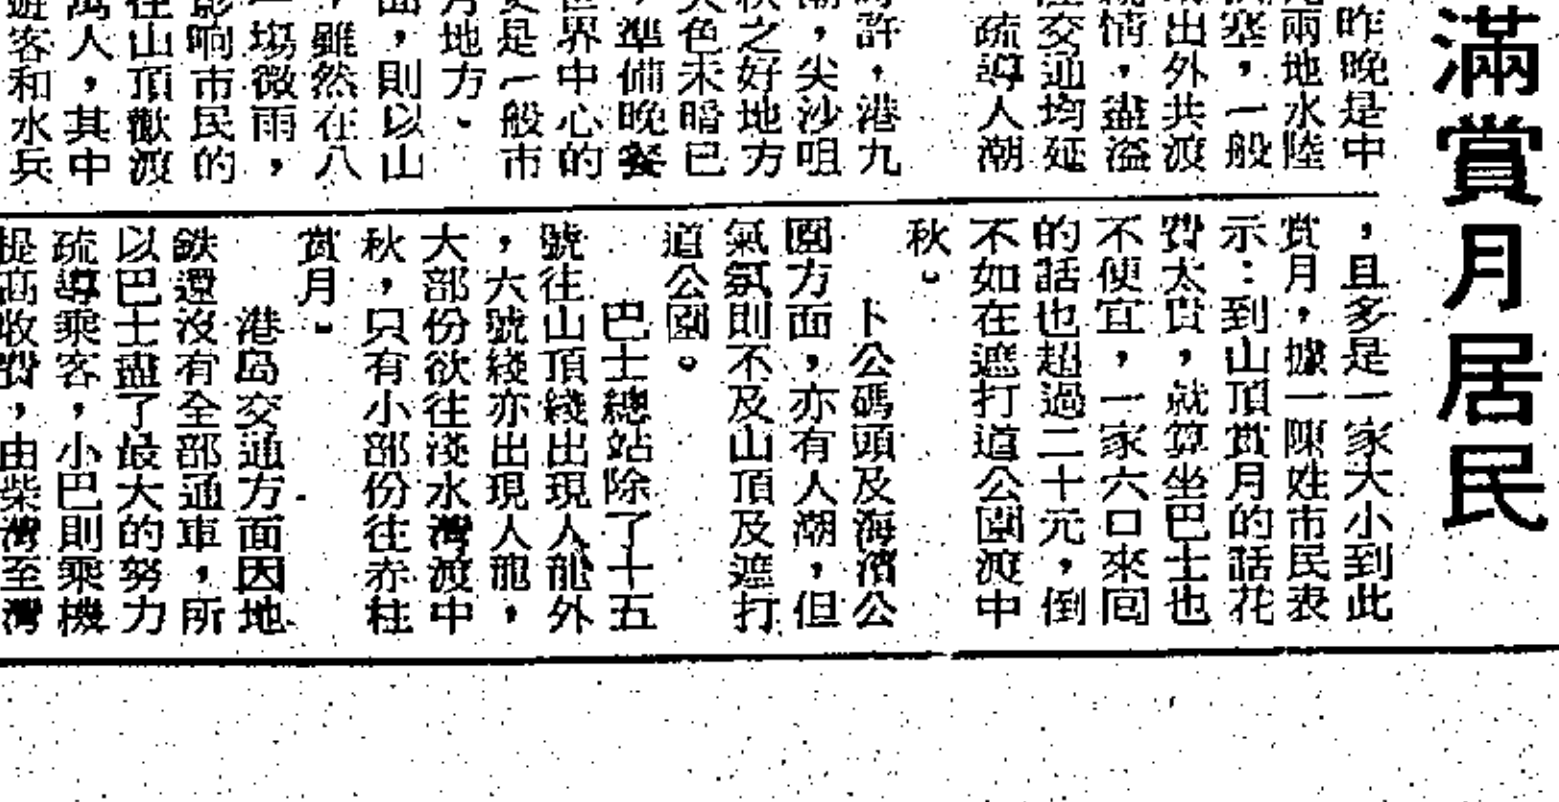 滿賞月居民
昨晚是中
兩地水陸
塞,一般
出外共渡
情,盡溢
交通均延
疏導人潮
許,港九
,尖沙咀
之好地方
色未暗已
準備晚餐
世界中心的
是一般市
地方。
,則以山
,雖然在八
塲微雨,
影响市民的
山頂歡渡
萬人,其中
遊客和水兵
,且多是一家大小到此
賞月,據一陳姓市民表
示:到山頂賞月的話花
費太貴,就算坐巴士也
不便宜,一家六口來回
的話也超過二十元,倒
不如在遮打道公園渡中
秋。
卜公碼頭及海濱公
園方面,亦有人潮,但
氣氛則不及山頂及遮打
道公園。
巴士總站除了十五
號往山頂綫出現人龍外
,六號綫亦出現人龍,
大部份欲往淺水灣渡中
秋,只有小部份往赤柱
賞月。
港島交通方面因地
鉄還沒有全部通車,所
以巴士盡了最大的努力
疏導乘客,小巴則乘機
提高收費,由柴灣至灣